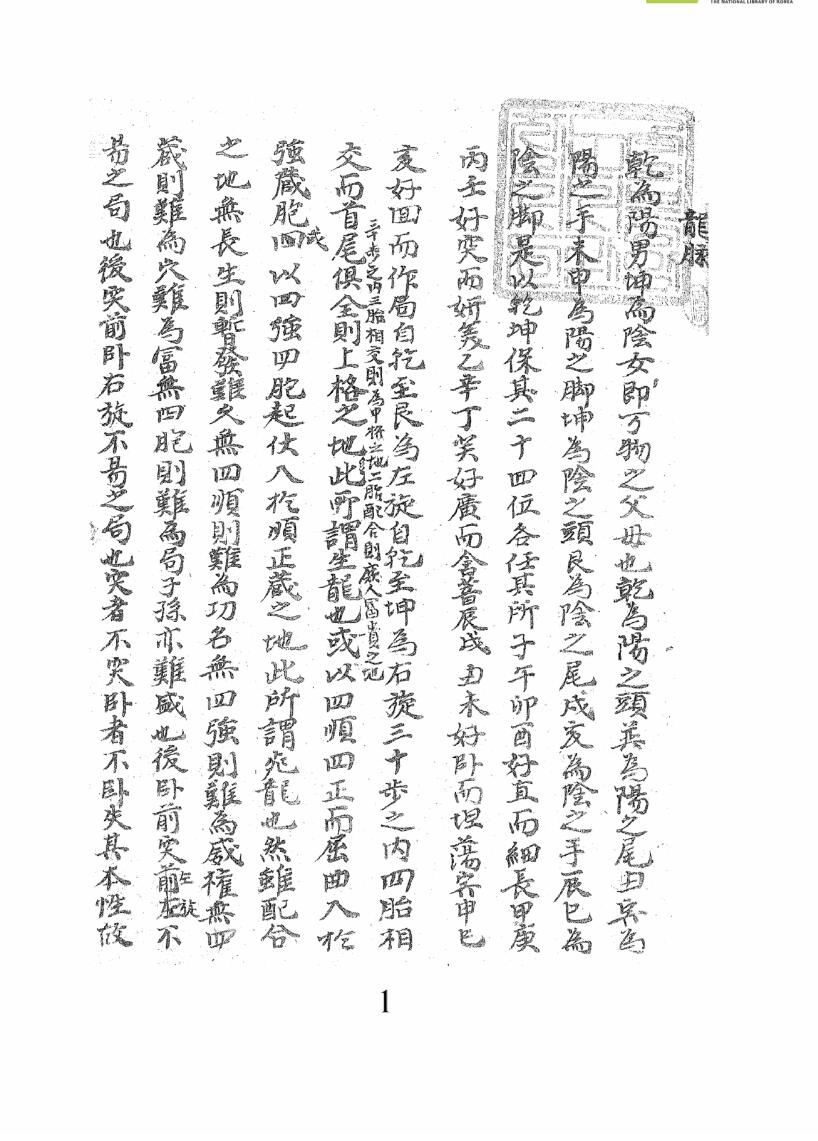 THE NATIONAL LIBRARY OF KOREA
龍脉
乾為陽男坤為陰女即万物之父母也乾為陽之頭巽為陽之尾丑寅為
陽之手未申為陽之脚坤為陰之頭艮為陰之尾戌亥為陰之手辰巳為
陰之脚是以乾坤保其二十四位各任其所子午卯酉好直而細長甲庚
丙壬好突而妍美乙辛丁癸好廣而含蓄辰戌丑未好卧而埋蕩寅申巳
亥好回而作局自乾至艮為左旋自乾至坤為右旋三十步之内四胎相
三十步之内三胎相交則為甲揥之地二胎配合則庶人富貴之地
交而首尾俱全則上格之地此所謂生龍也或以四順四正而屈曲入於
強蔵胞四或以四強四胞起伏入於順正蔵之地此所謂死龍也然雖配合
之地無長生則暫發難久無四順則難為功名無四強則難為威權無四
蔵則難為穴難為冨無四胞則難為局子孫亦難盛也後卧前突前左左旋不
易之局也後突前卧右旋不易之局也突者不突卧者不卧失其本性故
1